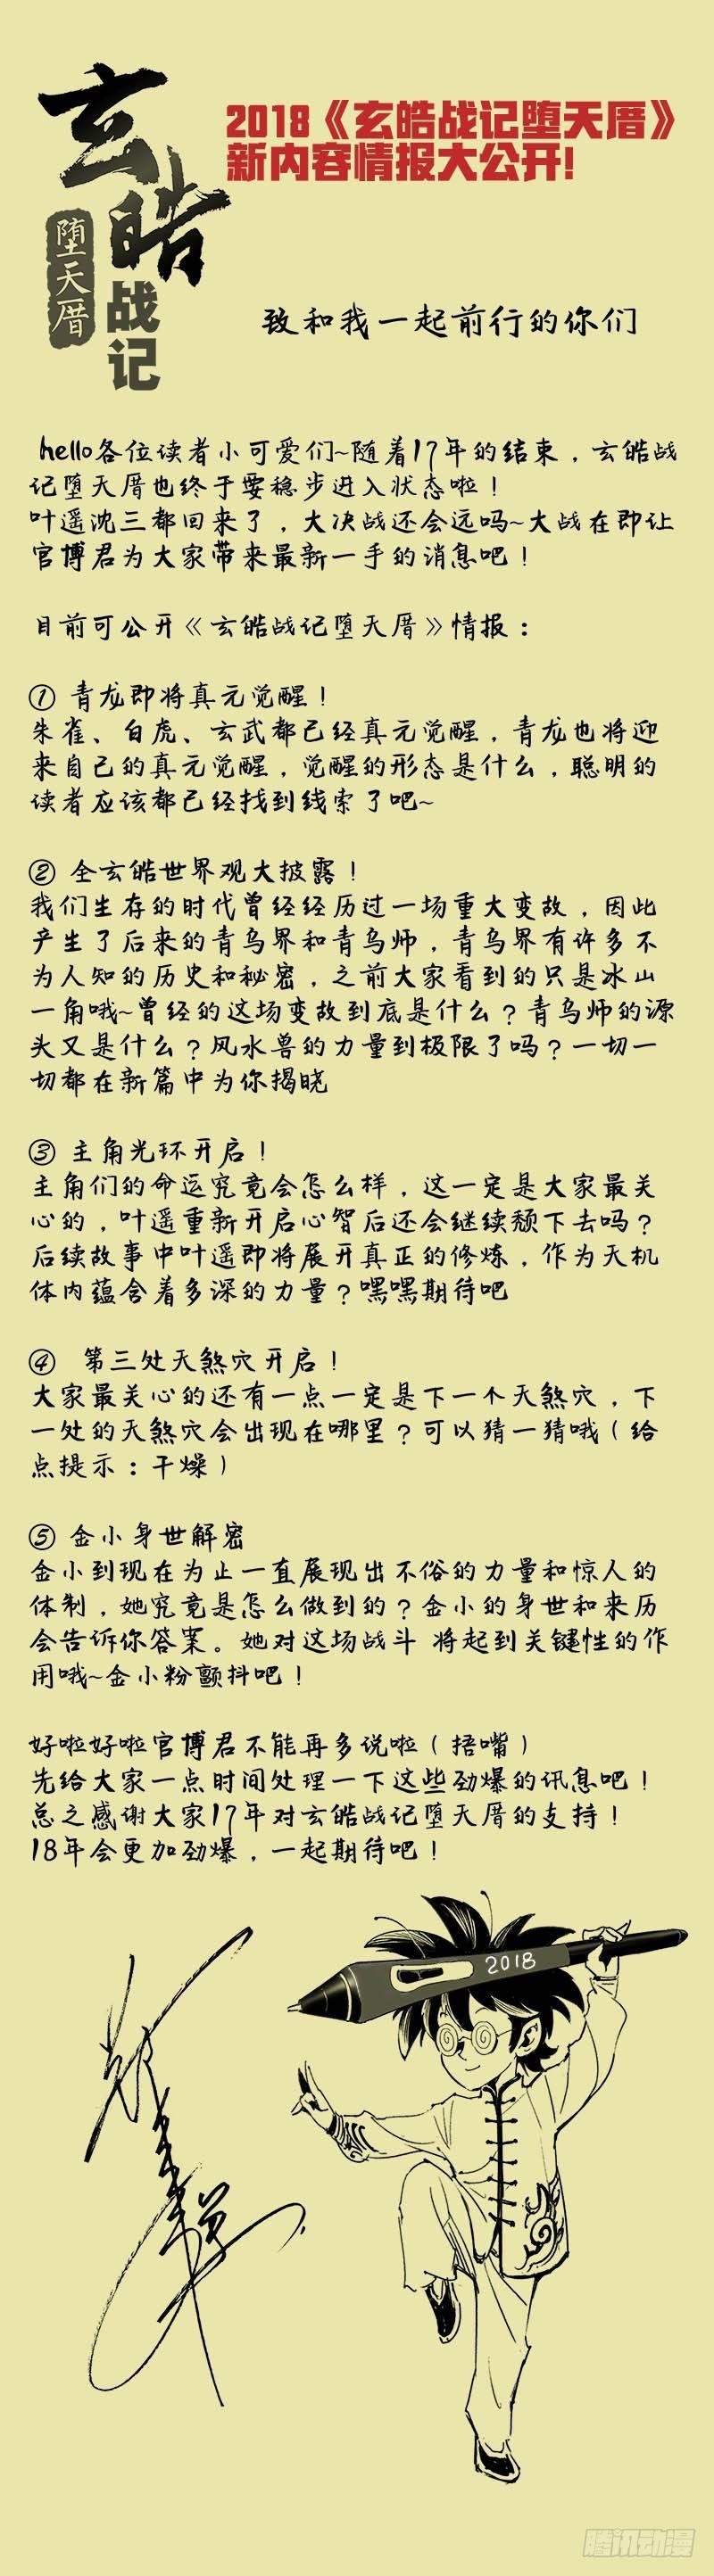 玄皓
战记
堕天厝
2018《玄皓战记堕天厝》
新内容情报大公开!
致和我一起前行的你们
hello各位读者小可爱们~随着17年的结束，玄皓战
记堕天厝也终于要稳步进入状态啦！
叶遥沈三都回来了，大决战还会远吗~大战在即让
官博君为大家带来最新一手的消息吧！
目前可公开《玄皓战记堕天厝》情报：
① 青龙即将真元觉醒！
朱雀、白虎、玄武都已经真元觉醒，青龙也将迎
来自己的真元觉醒，觉醒的形态是什么，聪明的
读者应该都已经找到线索了吧~
② 全玄皓世界观大披露！
我们生存的时代曾经经历过一场重大变故，因此
产生了后来的青乌界和青乌师，青乌界有许多不
为人知的历史和秘密，之前大家看到的只是冰山
一角哦~曾经的这场变故到底是什么？青乌师的源
头又是什么？风水兽的力量到极限了吗？一切一
切都在新篇中为你揭晓
③ 主角光环开启！
主角们的命运究竟会怎么样，这一定是大家最关
心的，叶遥重新开启心智后还会继续颓下去吗？
后续故事中叶遥即将展开真正的修炼，作为天机
体内蕴含着多深的力量？嘿嘿期待吧
④ 第三处天煞穴开启！
大家最关心的还有一点一定是下一个天煞穴，下
一处的天煞穴会出现在哪里？可以猜一猜哦（给
点提示：干燥）
⑤ 金小身世解密
金小到现在为止一直展现出不俗的力量和惊人的
体制，她究竟是怎么做到的？金小的身世和来历
会告诉你答案。她对这场战斗 将起到关键性的作
用哦~金小粉颤抖吧！
好啦好啦官博君不能再多说啦（捂嘴）
先给大家一点时间处理一下这些劲爆的讯息吧！
总之感谢大家17年对玄皓战记堕天厝的支持！
18年会更加劲爆，一起期待吧！
2018
腾讯动漫